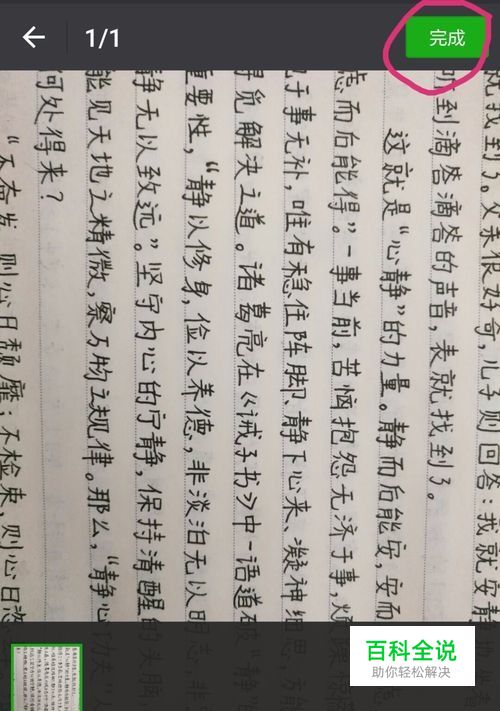 1/1
完成
找到了。父亲很好奇,儿子则回答:我就安静
听到滴答滴答的声音,表就找到了。
这就是“心静”的力量。静而后能安,安而
虑而后能得。”一事当前,苦恼抱怨无济于事,烦
于事无补,唯有稳住阵脚、静下心来、凝神细思,方能
寻觅解决之道。诸葛亮在《诫子书》中一语道破“静
重要性,“静以修身,俭以养德,非淡泊无以明志,非
静无以致远。”坚守内心的宁静,保持清醒的头脑
能见天地之精微,察万物之规律。那么,“静心功夫”从
何处得来?
“不奋发,则心日颓靡;不检束,则心日恣
百科全说
助你轻松解决